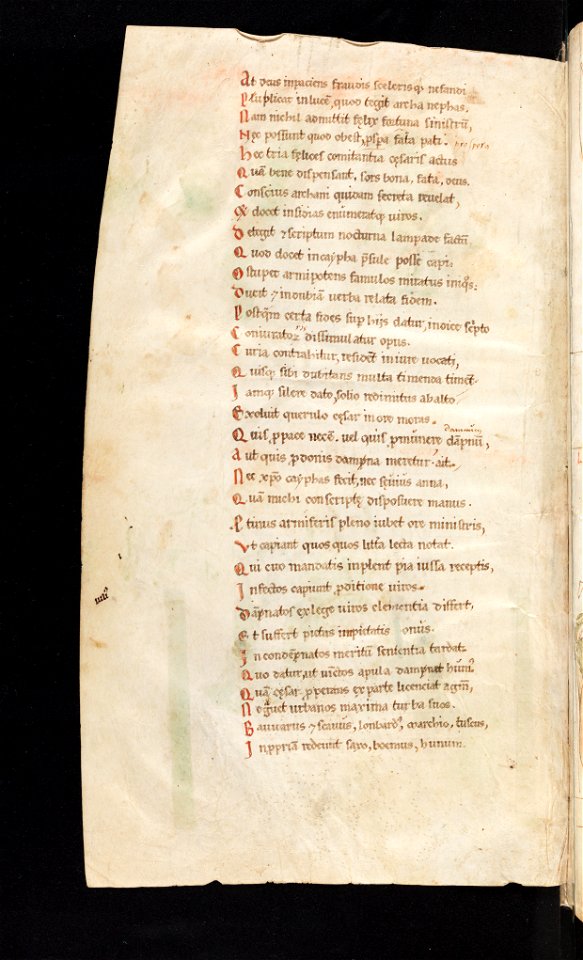 At deus inpaciens fraudis scelerisq; nefandi
Psuplicat in lucē, quod tegit archa nephas.
Nam nichil admittit felix fortuna sinistrū,
Nec possunt quod obest, pspa fata pati. prospera
Hec tria felices comitantia cesaris actus
Quā bene dispensant, sors bona, fata, deus.
Conscius archani quidam secreta revelat,
Et docet insidias enumeratq; viros.
Detegit & scriptum nocturna lampade factū,
Quod docet in caypha psule posse capi:
Obstupet armipotens famulos miratus iniqos:
Ducit & in dubiam verba relata fidem.
Postqm certa fides sup hijs datur, indice scpto
Coniuratoȝ dissimulatur opus.
Curia contrahitur, resident in iure vocati,
Quisq; sibi dubitans multa timenda timet.
Iamq; silere dato, solio redimitus ab alto,
Exoluit querulo cesar in ore moras.
Quis p pace necē. vel quis p munere dāpnū, dampnum
Aut quis p donis dampna meretur? ait.
Nec xpo cayphas fecit, nec sevius anna,
Quā michi conscripte disposuere manus.
Ptinus armiferis pleno iubet ore ministris,
Vt capiant quos quos littera lecta notat.
Qui cito mandatis implent pia iussa receptis,
Infectos capiunt pditione viros.
Dāpnatos ex lege viros clementia differt,
Et suffert pietas impietatis onus.
In condēpnatos meritū sententia tardat
Quo datur, ut vinctos apula dampnat hum9
Quā cesar pperans ex parte licenciat agm̄,
Neglet urbanos maxima turba suos.
Bauuarus & scauus, lonbard9, marchio, tuscus,
In ppriam redeunt saxo, boemus, humum.
iiii9